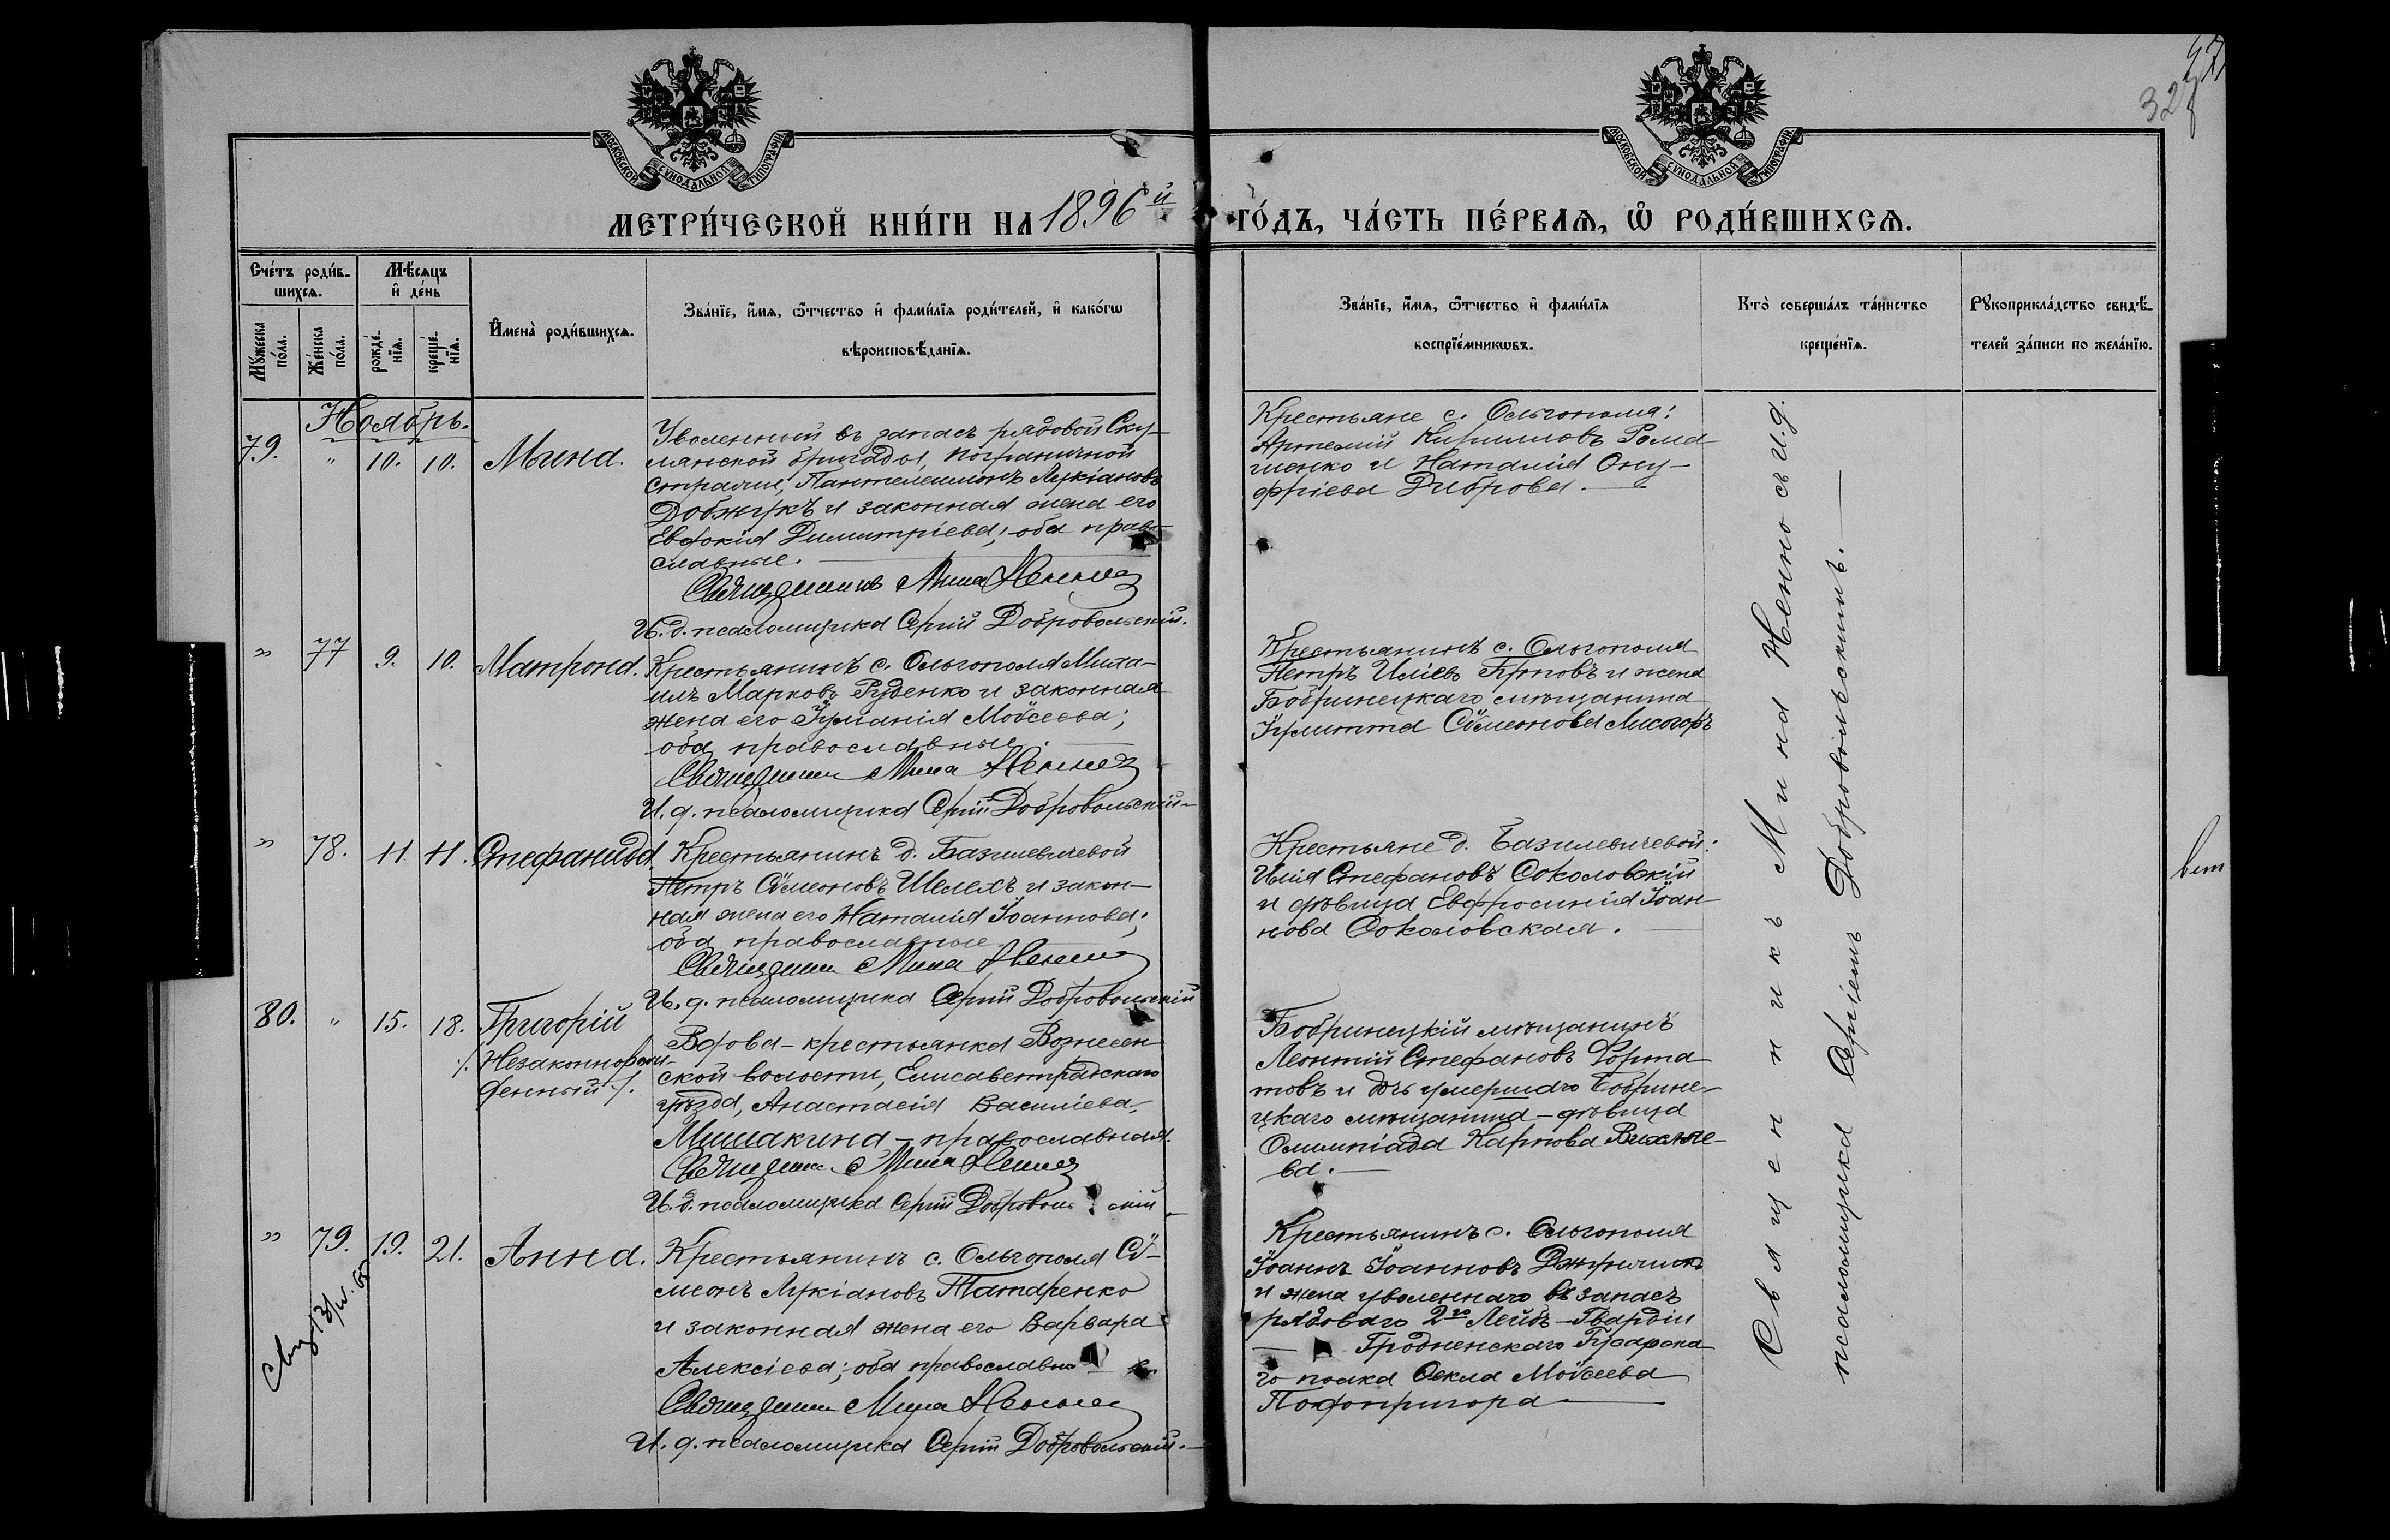 327
МОСКОВСКОЙ СѴНОДАЛЬНОЙ ТИПОГРАФІИ
МОСКОВСКОЙ СѴНОДАЛЬНОЙ ТИПОГРАФІИ
МЕТРИ́ЧЕСКОЙ КНИ́ГИ НА 1896й ГО́ДЪ, ЧА́СТЬ ПЕ́РВАѦ, Ѡ҆ РОДИ́ВШИХСѦ.
Сче́тъ роди́в-
шихсѧ.
Мꙋ́жеска по́ла.
Же́нска по́ла.
Мѣ́сѧцъ и҆ де́нь
рожде́-нїѧ.
креще́-нїѧ.
И҆мена̀ роди́вшихсѧ.
Зва́нїе, и҆́мѧ, ѻ҆́тчество и҆ фами́лїѧ роди́телей, и҆ како́гѡ
вѣроисповѣ́данїѧ.
Зва́нїе, и҆́мѧ, ѻ҆́тчество и҆ фами́лїѧ
воспрїе́мникѡвъ.
Кто̀ соверша́лъ та́инство
креще́нїѧ.
Рꙋкоприкла́дство свидѣ́-
телей за́писи по жела́нїю.
Ноябрь.
79. " 10. 10. Мина.
Уволенный въ запасъ рядовой Ску-
лянской бригады, пограничной
стражи, Пантелеимонъ Лукіановъ
Добжукъ и законная жена его
Евдокія Димитріева; оба право-
славные.
Священникъ Мина Ненно
И. д. псаломщика Сергій Добровольскій.
Крестьяне с. Ольгополя:
Артемій Кирилловъ Рома
шенко и Наталія Ону-
фріева Диброва.
" 77 9. 10. Матрона.
Крестьянинъ с. Ольгополя Миха-
илъ Марковъ Руденко и законная
жена его Іуліанія Моѵсеева;
оба православные.
Священникъ Мина Ненно
И. д. псаломщика Сергій Добровольскій
Крестьянинъ с. Ольгополя
Петръ Иліевъ и жена
Бобринецкаго мѣщанина
Іулитта Сѵмеонова Лисогоръ
" 78. 11. 11. Стефанида.
Крестьянинъ д. Базилевичевой
Петръ Сѵмеоновъ Шелехъ и закон-
ная жена его Наталія Іоаннова;
оба православные.
Священникъ Мина Ненно
И. д. псаломщика Сергій Добровольскій
Крестьяне д. Базилевичевой:
Илія Стефановъ Соколовскій
и дѣвица Евфросинія Іоан
нова Соколовская.
80. " 15. 18. Григорій
/. Незаконнорож-
денный /.
Вдова-крестьянка Вознесен
ской волости, Елисаветградскаго
уѣзда, Анастасія Василіева
Мишакина - православная.
Священникъ Мина Ненно
И. д. псаломщика Сергій Добровольскій
Бобринецкій мѣщанинъ
Леонтій Стефановъ
и дочь умершаго Бобрине-
цкаго мѣщанина - дѣвица
Олимпіада Карпова
ва.
" 79. 19. 21. Анна.
Крестьянинъ с. Ольгополя Сѵ-
меонъ Лукіановъ Татаренко
и законная жена его Варвара
Алексіева; оба православные
Священникъ Мина Ненно
И. д. псаломщика Сергій Добровольскій.
Крестьянинъ с. Ольгополя
Іоаннъ Іоанновъ
и жена уволеннаго въ запасъ
рядоваго 2го Лейбъ-Гвардіи
Гродненскаго Гусарска
го полка Ѳекла Моѵсеева
Подопригора
Священникъ Мина Ненно съ и. д.
псаломщика Сергіемъ Добровольскимъ.